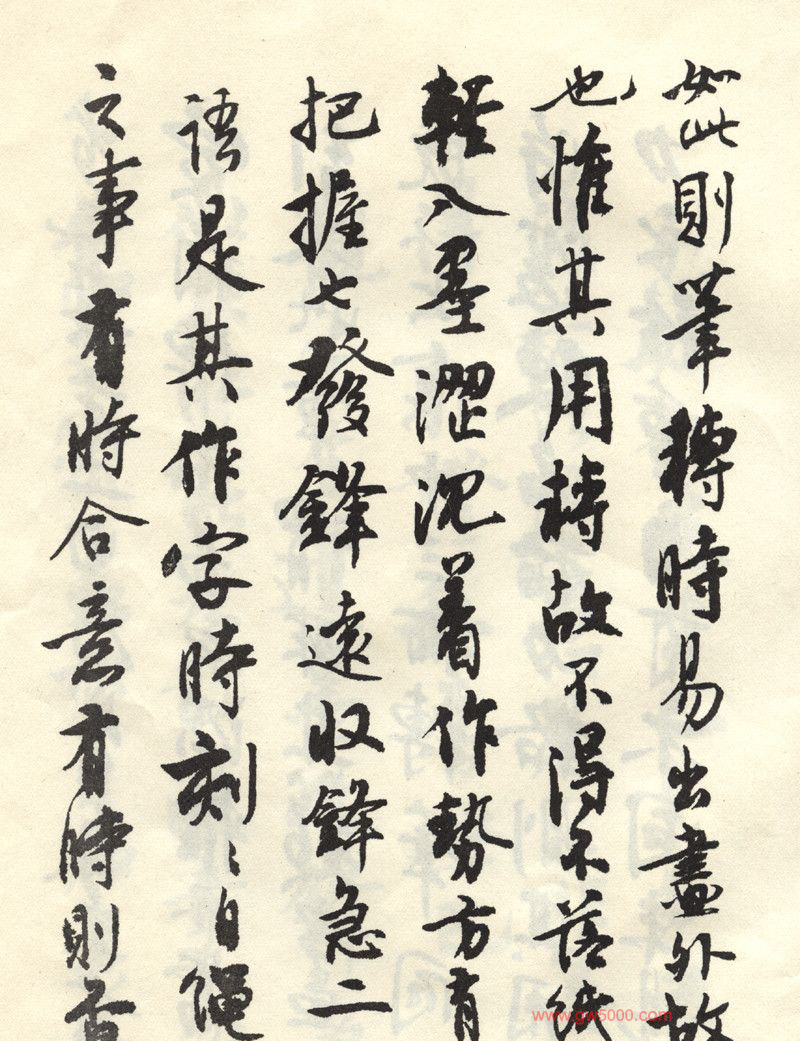 如此則筆轉時易出畫外故
也惟其用轉故不得不落紙
輕入墨澀沉着作勢方有
把握也發鋒遠收鋒急二
語是其作字時刻〻自繩
之事有時合意有時則否
www.gw5000.com